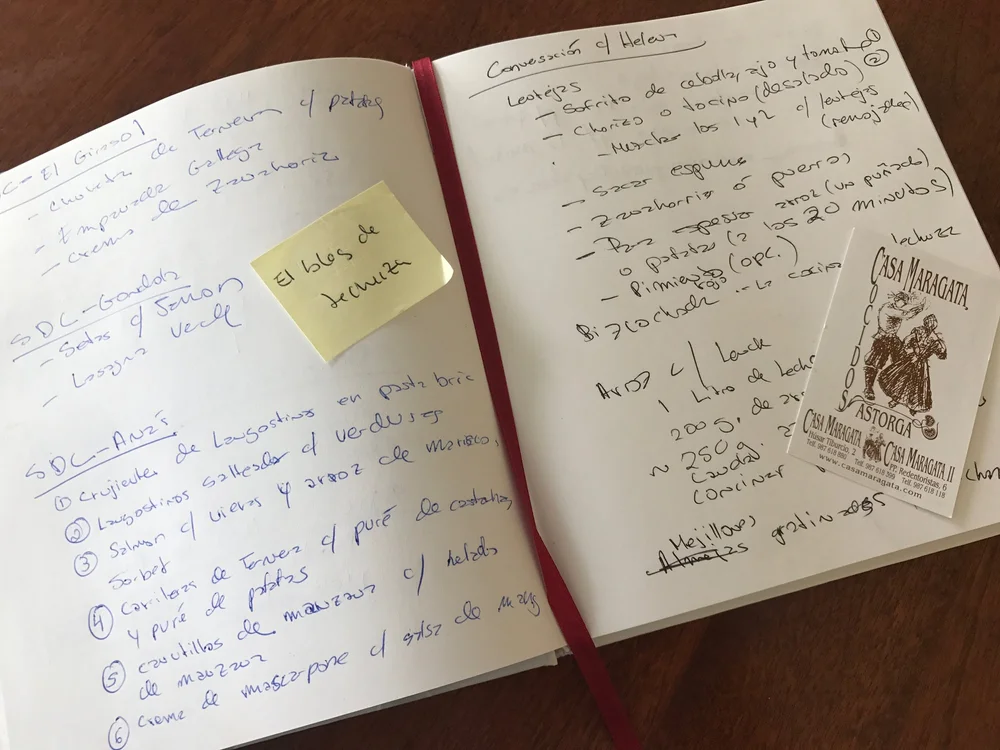 SDC-El Girasol
- Chuleta de Ternera c/ patatas
- Empanada Gallega
- Crema de Zanahoria
SDC-Gondola
- Setas c/ Jamon
- Lasagna Verde
SDC-Anzás
① Crujientes de Langostinos en pasta bric
② Langostinos salteados c/ verduras
③ Salmon c/ vieras y arroz de marisco,
Sorbet
④ Carrileras de Ternera c/ puré de castaña,
y puré de patatas
⑤ canutillos de manzana c/ helado
de manzana
⑥ crema de mascarpone c/ salsa de
El blos de
lechuza
Conversación c/ Helen
Lentejas
- Sofrito de cebolla, ajo y tomate ①
- Chorizo o tocino (desalado) ②
- Mezclar los 1 y 2 c/ lentejas
(remojadas)
- Sacar espuma
- Zanahorria ó puerros
- Para espesar arroz (un puñado)
o patata (a los 20 minutos)
- Pimiento rojo (opc.)
Bizcochada
lechuza
Arroz c/ Leche
1 Litro de Lech
200g. de
~ 250g.
Mejillones gratinados
CASA MARAGATA
COCIDOS
ASTORGA
CASA MARAGATA
Húsar Tiburcio, 2
Telf. 987 618 880
CASA MARAGATA II
PP. Redentoristas, 6
Telf. 987 618 399 Telf. 987 618 118
www.casamaragata.com